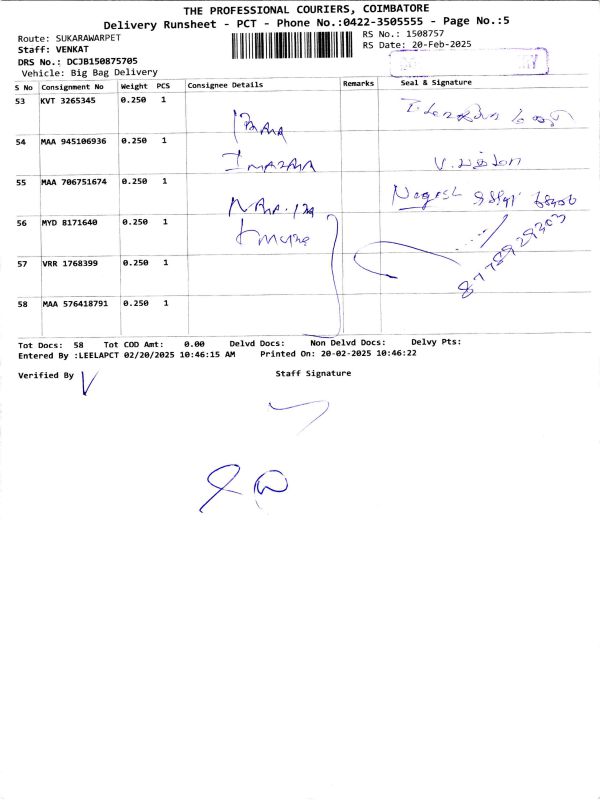 THE PROFESSIONAL COURIERS, COIMBATORE
Delivery Runsheet - PCT - Phone No.:0422-3505555 - Page No.:5
Route: SUKARAWARPET
RS No.: 1508757
Staff: VENKAT
RS Date: 20-Feb-2025
DRS No.: DCJB150875705
Vehicle: Big Bag Delivery
S No Consignment No Weight PCS Consignee Details Remarks Seal & Signature
53 KVT 3265345 0.250 1
54 MAA 945106936 0.250 1
55 MAA 706751674 0.250 1
Nagesh
56 MYD 8171640 0.250 1
8778929303
57 VRR 1768399 0.250 1
58 MAA 576418791 0.250 1
Tot Docs: 58 Tot COD Amt: 0.00 Delvd Docs: Non Delvd Docs: Delvy Pts:
Entered By :LEELAPCT 02/20/2025 10:46:15 AM Printed On: 20-02-2025 10:46:22
Verified By Staff Signature